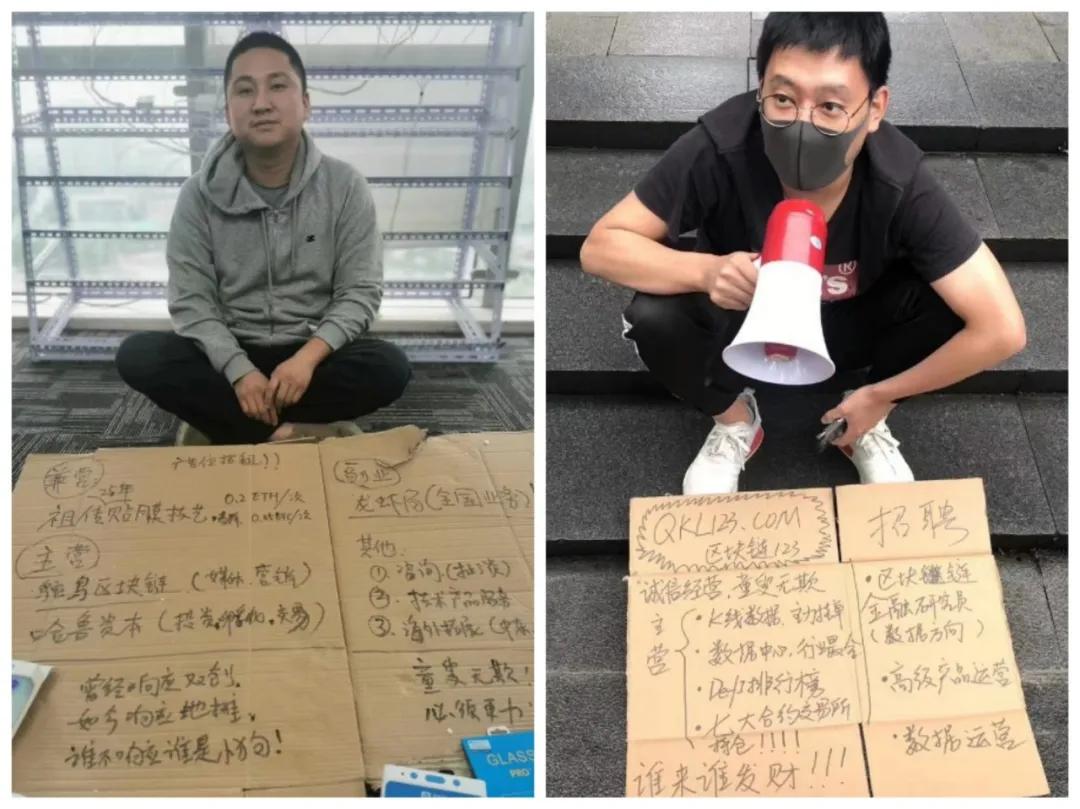 广告位招租!!
兼营
25年
祖传贴膜技艺
0.2 ETH/次
主营
鸵鸟区块链 (媒体.营销)
哈鲁资本 (投资,孵化,交易)
曾经响应双创,
如今响应地摊,
谁不响应谁是小狗!
副业
龙虾局(全国业务)
其他:
① 咨询
② 技术产品服务
③ 海外拓展
童叟无欺!
GLASS
PRO
®
QKL123.COM
区块链123
诚信经营,童叟无欺
主营
• K线数据,主力挂单
• 数据中心,行业最全
• Defi排行榜
• 七大合约交易所
持仓!!!!
谁来谁发财!!!
招聘
• 区块链
金融研究员
(数据方向)
• 高级产品运营
• 数据运营